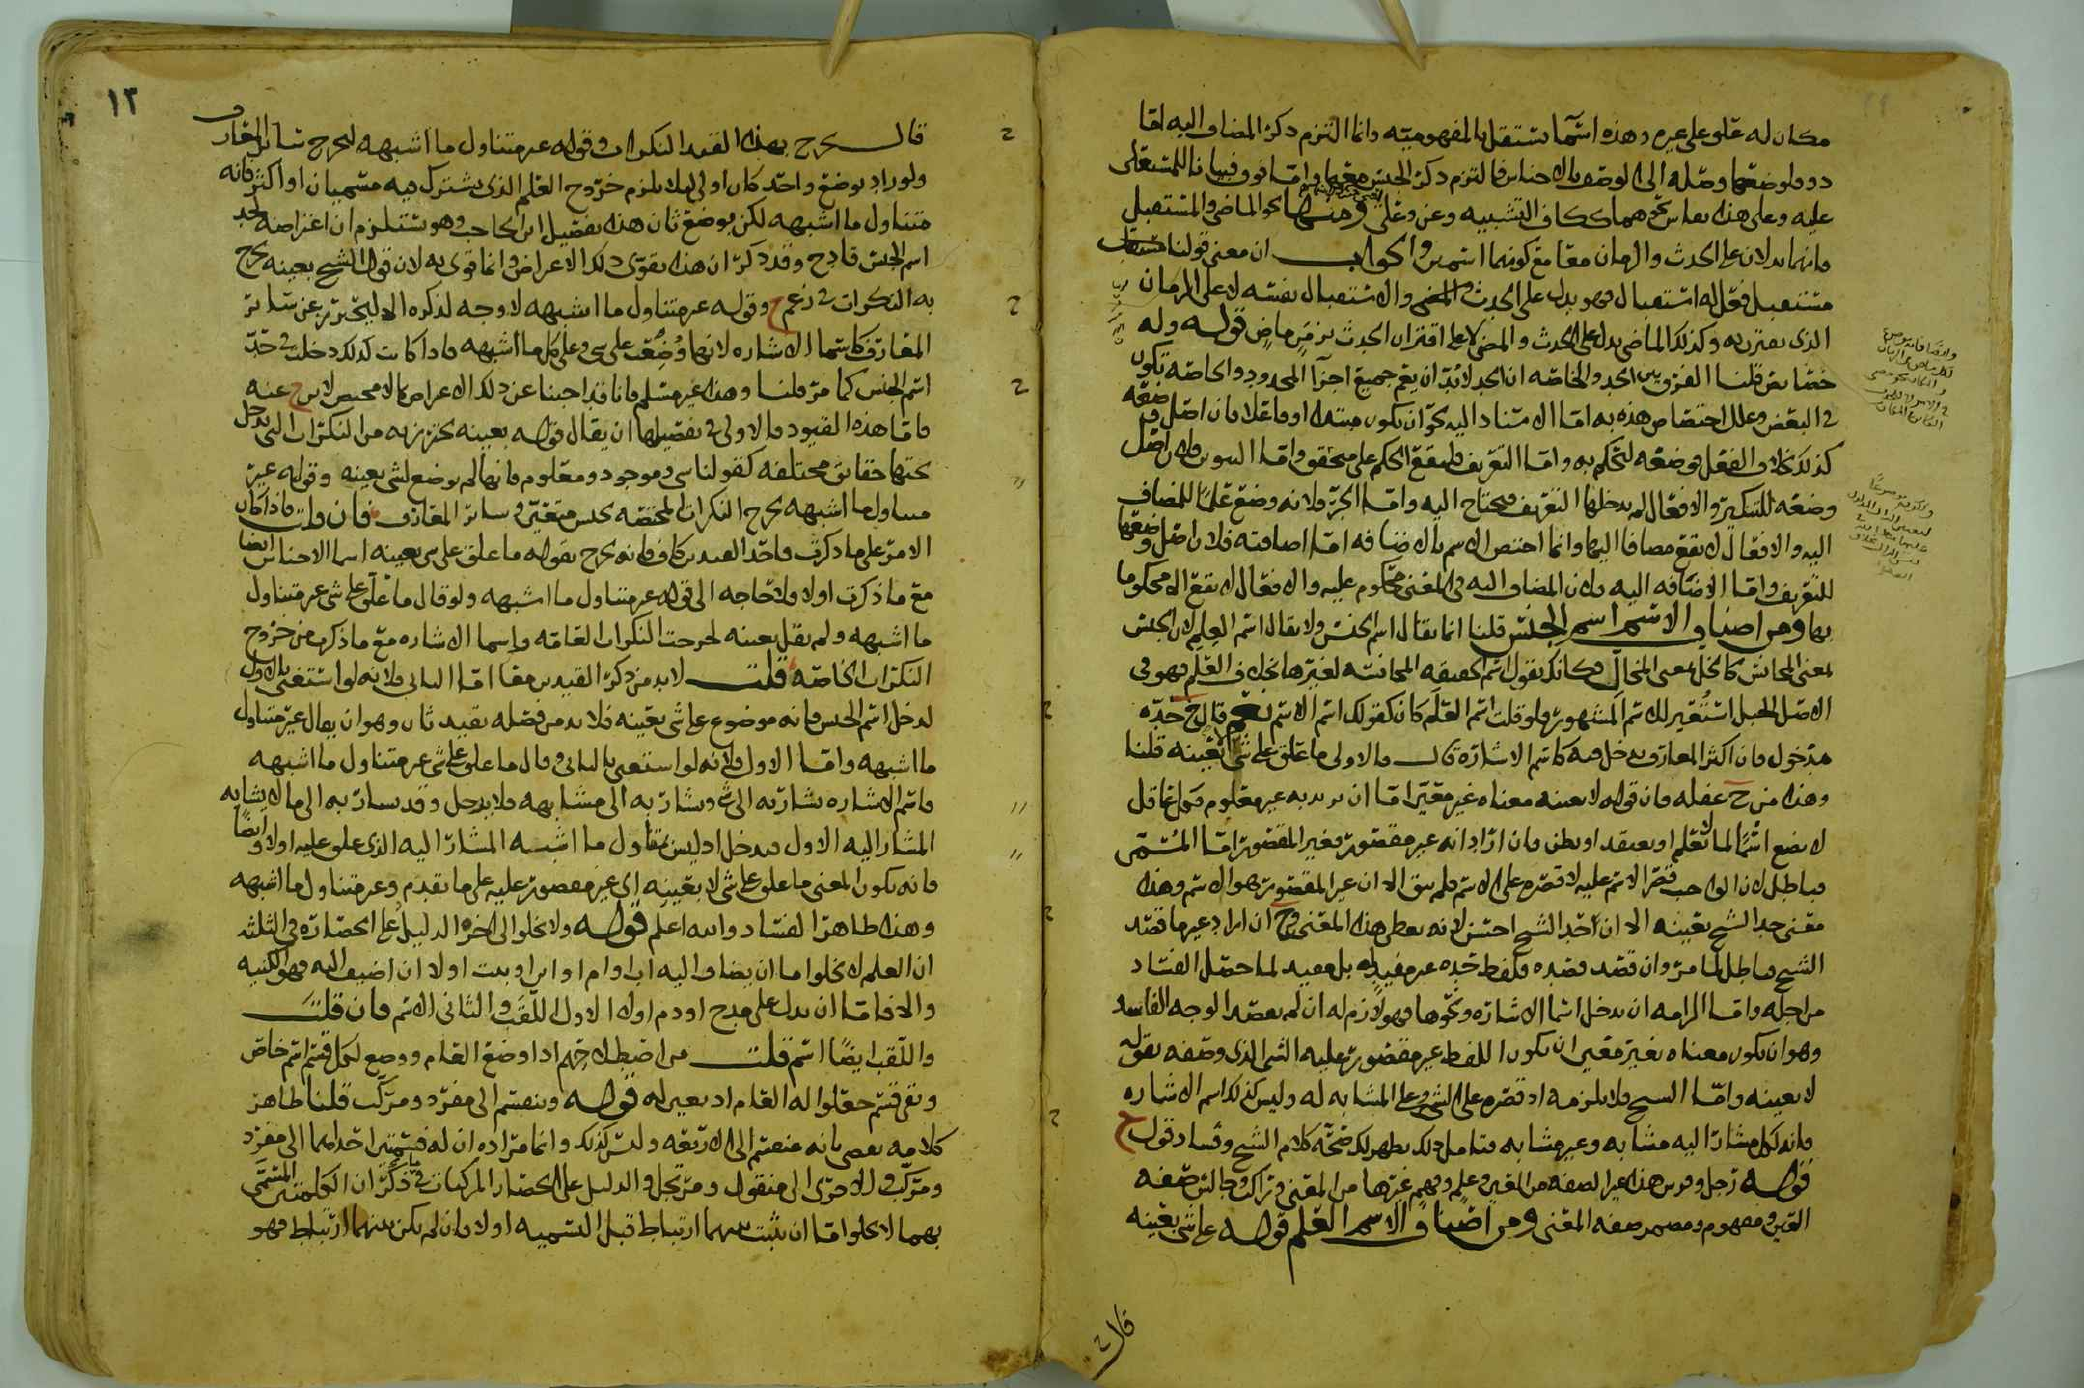 مكان له علو على غيره وهذه اسما تستقل بالمفهومية وانما التزم ذكر المضاف اليه اما
عليه وعلى هذا نحوهما ككاف التشبيه وعن وعلى ومنها نحو الماضي والمستقبل
فانهما يدلان على الحدث والزمان معا مع كونهما اسمين والجواب ان معنى قولنا
مستقبل فعل له استقبال فهو يدل على الحدث والمضي والاستقبال نفسه لا على الزمان
الذي يقترن به وكذلك الماضي يدل على الحدث والمضي لا على اقتران الحدث بزمن ماض قوله وله
خصائص قلنا الفرق بين الحد والخاصة ان الحد لابد ان يعم جميع اجزاء المحدود والخاصة تكون
في البعض وعلل اختصاص هذه به اما الاسناد اليه نحو ان يكون مبتدا او فاعلا فان اصل وضعه
كذلك بخلاف الفعل فوضعه ليحكم به واما التعريف فليقع الحكم على متحقق واما التنوين فلان اصل
وضعه للتنكير والافعال لم يدخلها التعريف فيحتاج اليه واما الجر فلانه وضع علما للمضاف
اليه والافعال لا يقع مضافا اليها وانما اختص الاسم بالاضافة اما اضافته فلان اصل وضعها
للتعريف واما الاضافة اليه فلان المضاف اليه في المعنى محكوم عليه والافعال لا يقع الا محكوما
بها ومن اصناف الاسم اسم الجنس قلنا انما يقال اسم الجنس ولا يقال اسم العلم لان الجنس
بمعنى المجانس كالخل بمعنى المخال فكانك تقول اسم الحقيقة المجانسة لغيرها بخلاف العلم فهو في
الاصل الجبل استعير للاسم المشهور فلو قلت اسم العلم كان كقولك اسم الاسم نعم قال ح حده
مدخول فان اكثر المعارف يدخل فيه كاسم الاشارة قال والاولى ما علق على شي لا بعينه قلنا
وهذا من ح غفلة فان قوله لا بعينه معناه غير معين اما ان يريد به غير معلوم
لا يضع اسما لما لا يعلم او يعتقد او يظن وان اراد انه غير مقصور فغير المقصور اما المسمى
فباطل لان الواجب قصر الاسم عليه لا قصره على الاسم فلم يبق الا ان غير المقصور هو الاسم وهذا
معنى حد الشيخ بعينه الا ان حد الشيخ احسن لانه يعطي هذا المعنى وح ان اراد غير ما قصد
الشيخ فباطل لما مر وان قصد قصده فلفظ حده غير مفيد له بل مفيد لما حصل الفساد
من اجله واما الزامه ان يدخل اسما الاشارة ونحوها فهو لازم له ان لم يقصد الوجه الفاسد
وهو ان يكون معناه بغير معين ان يكون اللفظ غير مقصور عليه الشي الذي وصفه بقوله
لا بعينه واما الشيخ فلا يلزمه اذ قصره على الشي وعلى المشابه له وليس كذلك اسم الاشارة
فانه لكل مشار اليه مشابه وغير مشابه فتامل ذلك يظهر لك صحة كلام الشيخ وفساد قول ح
قوله رجل وفرس هذا غير الصفة من العين وعلم وفهم غيرها من المعنى وراكب وجالس صفة
العين ومفهوم ومضمر صفة المعنى ومن اصناف الاسم العلم قوله على شي بعينه
قال ح
١٣
قال يخرج بهذا القيد النكرات وقوله غير متناول ما اشبهه ليخرج سائر المعارف
ولو زاد بوضع واحد كان اولى لئلا يلزم خروج العلم الذي يشترك فيه مسميان او اكثر فانه
متناول ما اشبهه لكن بوضع ثان هذا تفصيل ابن الحاجب وهو يستلزم ان اعتراضه لحد
اسم الجنس قادح وقد ذكر ان هذا يقوي ذلك الاعتراض وانما قوي به لان قول الشيخ بعينه يخرج
به النكرات في زعم ح وقوله غير متناول ما اشبهه لا وجه لذكره الا ليحترز عن سائر
المعارف كاسما الاشارة لانها وضعت على شي وعلى كل ما اشبهه فاذا كانت كذلك دخلت في حد
اسم الجنس كما مر قلنا وهذا غير مسلم فانا قد اجبنا عن ذلك الاعتراض بما لا محيص لابن ح عنه
فاما هذه القيود فالاولى في تفصيلها ان يقال قوله بعينه يحترز به من النكرات التي يدخل
تحتها حقائق مختلفة كقولنا شي وموجود ومعلوم فانها لم يوضع لشي بعينه وقوله غير
متناول ما اشبهه يخرج النكرات المختصة بجنس متعين وسائر المعارف فان قلت فاذا كان
الامر على ما ذكرت فاحد القيدين كاف فانه يخرج بقوله ما علق على شي بعينه اسما الاجناس ايضا
مع ما ذكرت اولا ولا حاجة الى قوله غير متناول ما اشبهه ولو قال ما علق على شي غير متناول
ما اشبهه ولم يقل بعينه لخرجت النكرات العامة واسما الاشارة مع ما ذكرت من خروج
النكرات الخاصة قلت لابد من ذكر القيدين معا اما الثاني فلانه لو استغنى بالاول
لدخل اسم الجنس فانه موضوع على شي بعينه فلا بد من فصله بقيد ثان وهو ان يقال غير متناول
ما اشبهه واما الاول فلانه لو استغنى بالثاني وقال ما علق على شي غير متناول ما اشبهه
فاسم الاشارة يشار به الى شي ويشار به الى مشابهه فلا يدخل وقد يشار به الى ما لا يشابه
المشار اليه الاول فيدخل اذ ليس بمتناول ما اشبه المشار اليه الذي علق عليه اولا وايضا
فانه يكون المعنى ما علق على شي لا بعينه اي غير مقصور عليه على ما تقدم وغير متناول ما اشبهه
وهذا ظاهر الفساد والله اعلم قوله ولا يخلو الى اخره الدليل على انحصاره في الثلثة
ان العلم لا يخلو اما ان يضاف اليه اب او ام او ابن او بنت او لا ان اضيف اليه فهو الكنية
والا فاما ان يدل على مدح او ذم او لا الاول اللقب والثاني الاسم فان قلت
واللقب ايضا اسم قلت من اضيطلاحهم اذا وضع العام ووضع لكل قسم اسم خاص
وبقي قسم جعلوا له العام اذ يعين له قوله وينقسم الى مفرد ومركب قلنا ظاهر
كلامه يقضي بانه منقسم الى الاربعة وليس كذلك وانما مراده ان له قسمتين احداهما الى مفرد
ومركب والاخرى الى منقول ومرتجل والدليل على انحصار المركبات فيما ذكر ان الكلمتين المسمى
بهما لا يخلو اما ان يثبت بينهما ارتباط قبل التسمية او لا فان لم يكن بينهما ارتباط فهو